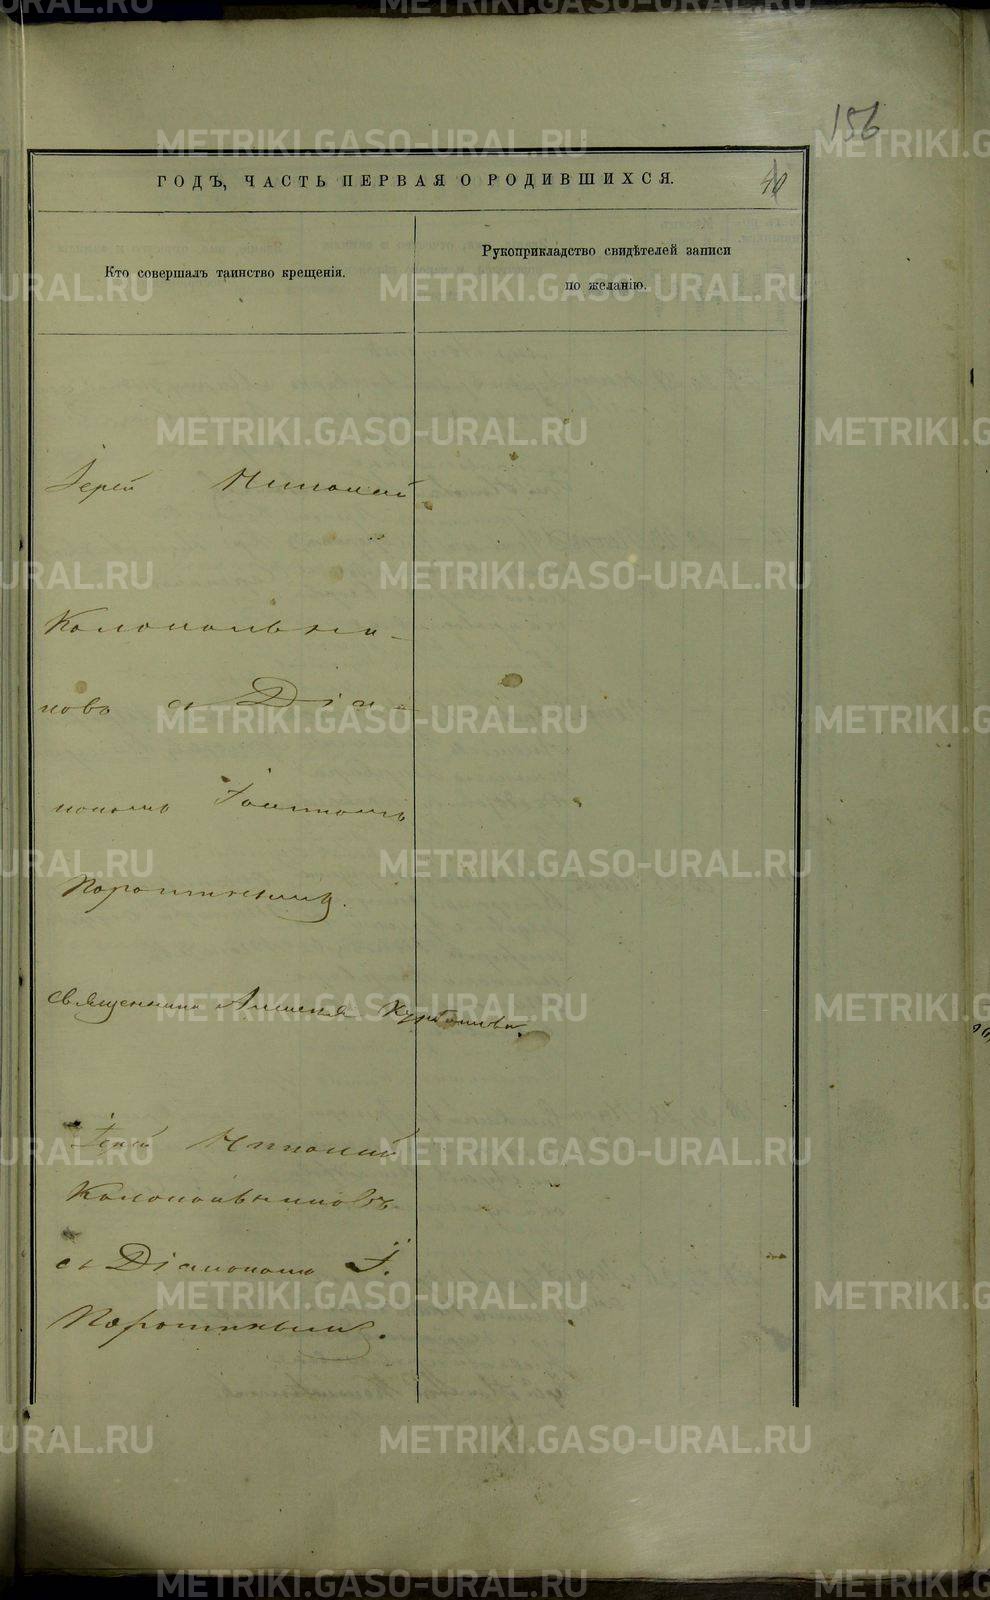 156
ГОДЪ, ЧАСТЬ ПЕРВАЯ О РОДИВШИХСЯ.
40
Кто совершалъ таинство крещенія.
Рукоприкладство свидѣтелей записи
по желанію.
Іерей Николай
Колокольни-
ковъ съ Діа-
кономъ Іоанномъ
Порошинымъ.
священника Алексея
Іерей Николай
Колокольниковъ
съ Діакономъ І.
Порошинымъ.
METRIKI.GASO-URAL.RU